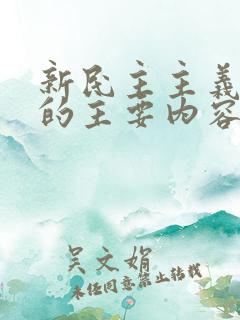 新民主主義
的主要内容
吴文娟
未经同意禁止转载